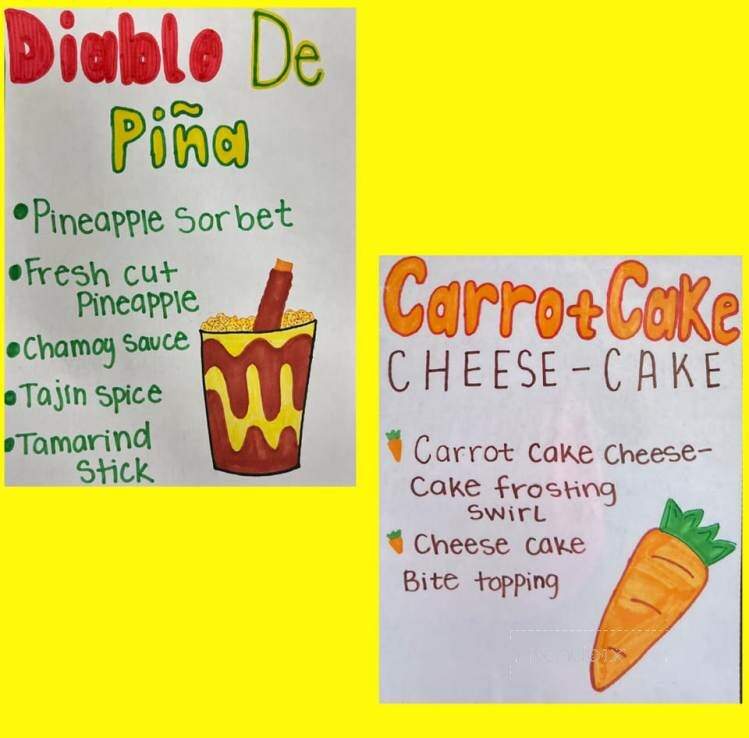 Diablo De
Piña
• Pineapple Sorbet
• Fresh cut
Pineapple
• Chamoy sauce
• Tajin spice
• Tamarind
Stick
Carrot Cake
CHEESE-CAKE
Carrot Cake Cheese-
Cake frosting
Swirl
Cheese cake
Bite topping